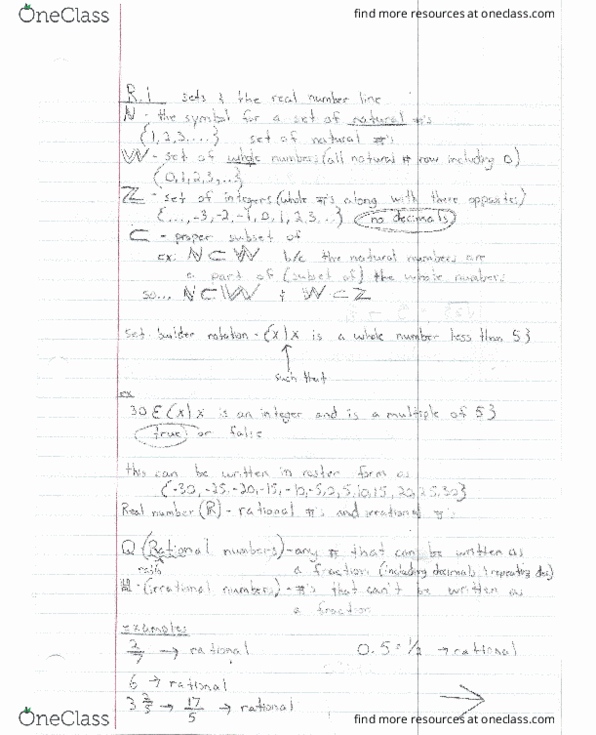 OneClass
find more resources at oneclass.com
R.1 sets & the real number line
N - the symbol for a set of natural #'s
{1,2,3,...} set of natural #'s
W - set of whole numbers (all natural # now including 0)
{0,1,2,3,...}
Z - set of integers (whole #'s along with there opposites)
{...,-3,-2,-1,0,1,2,3,...} no decimals
⊂ - proper subset of
ex: N⊂W b/c the natural numbers are
a part of (subset of) the whole numbers
so... N⊂W & W⊂Z
set-builder notation - {x|x is a whole number less than 5}
such that
ex
30 ∈ {x|x is an integer and is a multiple of 5}
true or false
this can be written in roster form as
{-30, -25, -20, -15, -10, -5, 0, 5, 10, 15, 20, 25, 30}
Real number (R) - rational #'s and irrational #'s
Q (Rational numbers) - any # that can be written as
ratio a fraction (including decimals & repeating dec)
(irrational numbers) - #'s that can't be written as
a fraction
examples
2/7 → rational 0.5 = 1/2 → rational
6 → rational
3 2/5 → 17/5 → rational
OneClass
find more resources at oneclass.com